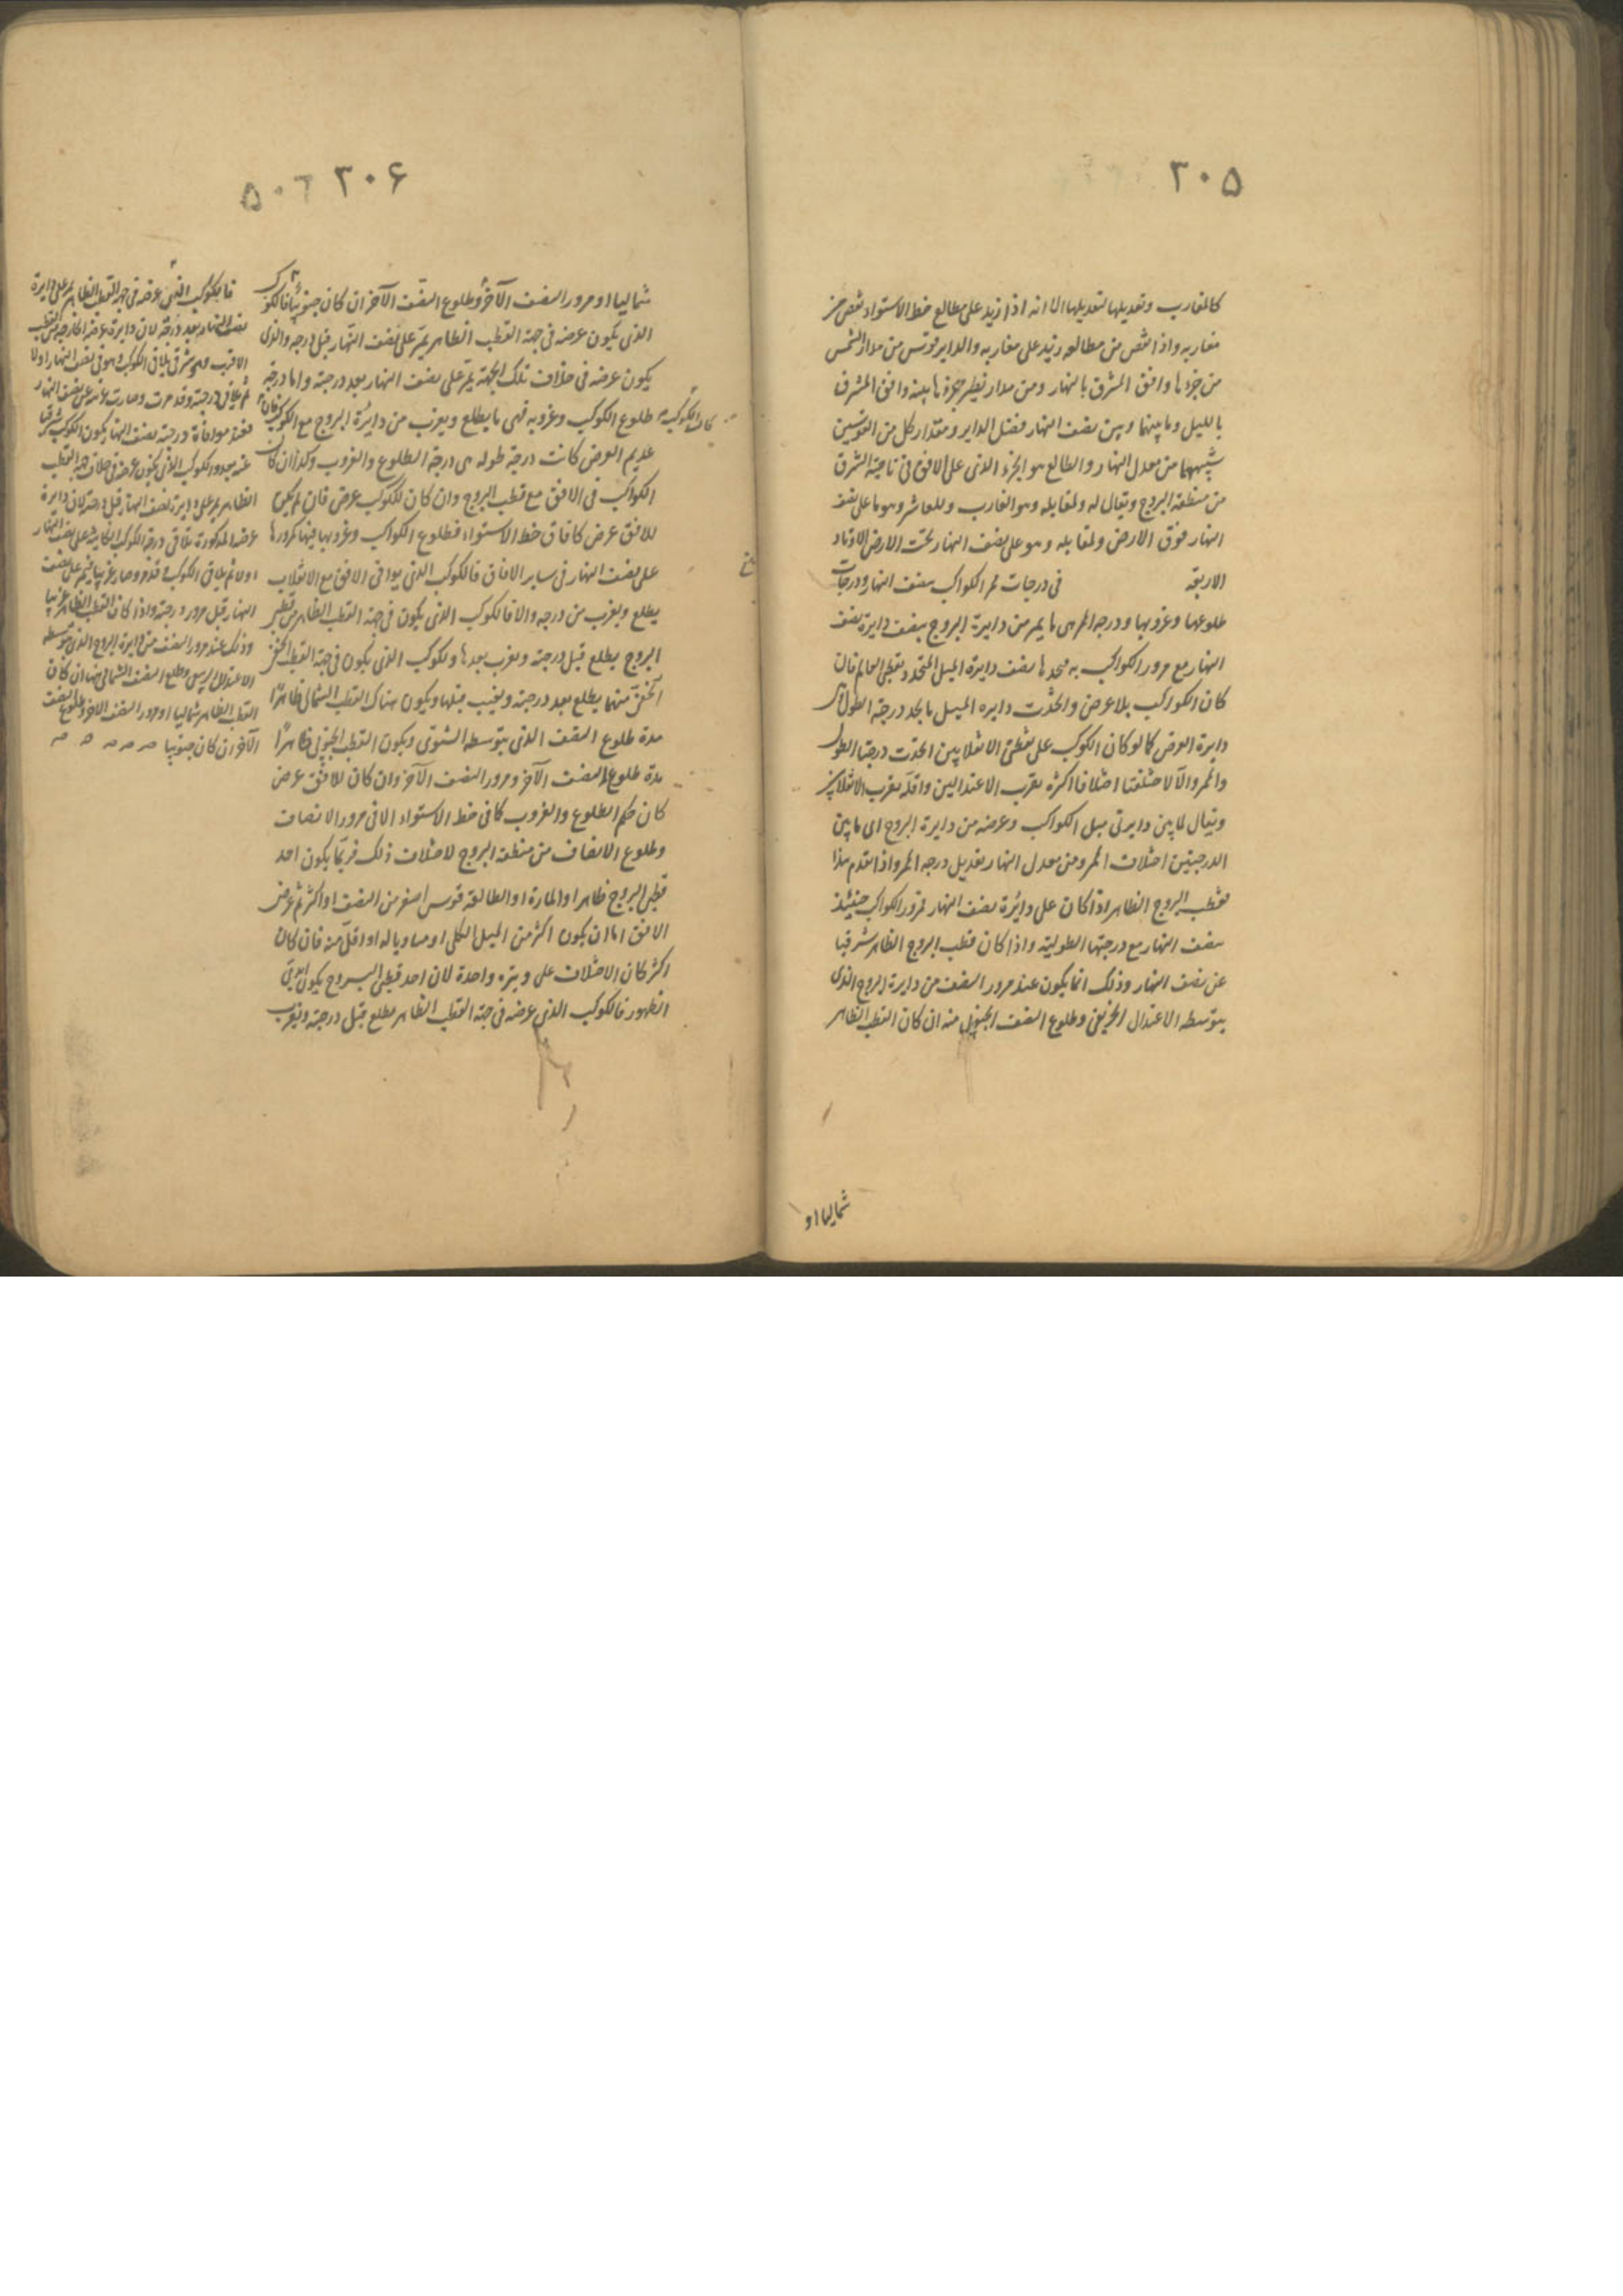 ٢٠٥
كالمغارب وتعديلها لتعديلها الا انه اذا زيد على مطالع خط الاستواء نقص من
مغاربه واذا نقص من مطالعه زيد على مغاربه والداير قوس من مدار الشمس
من جزءها وافق المشرق بالنهار ومن مدار نظير جزءها بينه وافق المشرق
بالليل وما بينها وبين نصف النهار فضل الداير ومقدار كل من القوسين
شبيههما من معدل النهار والطالع هو الجزء الذى على الافق فى ناحية الشرق
من منطقة البروج ويقال له ولمقابله وهو الغارب وللعاشر وهو ما على نصف
النهار فوق الارض ولمقابله وهو على نصف النهار تحت الارض الاوتاد
الاربعة فى درجات ممر الكواكب بنصف النهار ودرجات
طلوعها وغروبها ودرجة الممر هى ما يمر من دايرة البروج بنصف دايرة نصف
النهار مع مرور الكواكب به بنصف دايرة الميل المتحدد بقطبى العالم فان
كان الكواكب بلا عرض واتحدت دايره الميل درجة الطول
دايرة العرض كما لو كان الكوكب على نقطتى الانقلابين اتحدت درجتا الطول
والممر والّا لاختلفتا اختلافا اكثره بقرب الاعتدالين واقله بقرب الانقلابين
ويقال لما بين دايرتى ميل الكواكب وعرضه من دايرة البروج اى ما بين
الدرجتين اختلاف الممر ومن معدل النهار تعديل درجه الممر واذا تقدم هذا
فقطب البروج الظاهر اذا كان على دائرة نصف النهار فمرور الكواكب حينئذ
بنصف النهار مع درجتها الطولية واذا كان قطب البروج الظاهر شرقيا
عن نصف النهار وذلك انما يكون عند مرور النصف من دايرة البروج الذى
يتوسطه الاعتدال الخريفى وطلوع النصف الجنوبى منه ان كان القطب الظاهر
شماليا او
٢٠۶
٥٠٦
شماليا او مرور النصف الآخر وطلوع النصف الآخر ان كان جنوبيا فالكوكب
الذى يكون عرضه فى جهة القطب الظاهر يمر على نصف النهار قبل درجه والذى
يكون عرضه فى خلاف تلك الجهة يمر على نصف النهار بعد درجته واما درجة
طلوع الكوكب وغروبه فهى ما يطلع ويغرب من دايرة البروج مع الكوكب فان
كان الكوكب
عديم العرض كانت درجة طوله هى درجة الطلوع والغروب وكذا ان كان
الكواكب فى الافق مع قطب البروج وان كان للكوكب عرض فان لم يكن
للافق عرض كافاق خط الاستواء فطلوع الكواكب وغروبها فيها كمرورها
على نصف النهار فى ساير الافاق فالكوكب الذى يوافى الافق مع الانقلاب
يطلع ويغرب من درجه والا فالكوكب الذى يكون فى جهة القطب الظاهر من قطبى
البروج يطلع قبل درجته ويغرب بعدها والكوكب الذى يكون فى جهة القطب الخفى
الخفى منهما يطلع بعد درجته ويغيب قبلها ويكون هناك القطب الشمالى ظاهرًا
مدة طلوع النصف الذى يتوسطه الشتوى ويكون القطب الجنوبى ظاهرًا
مدة طلوع النصف الآخر ومرور النصف الآخر وان كان للافق عرض
كان حكم الطلوع والغروب كما فى خط الاستواء الا فى مرور الانصاف
وطلوع الانصاف من منطقة البروج لاختلاف ذلك فربما يكون احد
قطبى البروج ظاهرا والمارة او الطالعة قوس اصغر من النصف او اكثر ثم عرض
الافق اما ان يكون اكثر من الميل الكلى او مساويا له او اقل منه فان كان
اكثر كان الاختلاف على وتيرة واحدة لان احد قطبى البروج يكون ابدى
الظهور فالكوكب الذى عرضه فى جهة القطب الظاهر يطلع قبل درجته ويغرب
فالكوكب الذى عرضه فى جهة القطب الظاهر يمر على دايرة
نصف النهار بعد درجته لان دايرة عرضه الخارجة من القطب
الاقرب وهى شرقى يلاقى الكوكب وهو فى نصف النهار اولا
ثم يلاقى درجته وقد مرت وصارت غربية عن نصف النهار
فعند موافاة درجته نصف النهار يكون الكوكب شرقيا
عنه بعد والكوكب الذى يكون عرضه فى خلاف جهة القطب
الظاهر يمر على دايرة نصف النهار قبل درجته لان دايرة
عرضه المذكورة تلاقى درجة الكوكب الكاينة على نصف النهار
اولا ثم يلاقى الكوكب وقد مر وصار غربيا فيمر على نصف
النهار قبل مرور درجته واذا كان القطب الظاهر غربيا
وذلك عند مرور النصف من دايرة البروج الذى يتوسطه
الاعتدال الربيعى وطلوع النصف الشمالى منها ان كان
القطب الظاهر شماليا او مرور النصف الاخر وطلوع النصف
الآخر ان كان جنوبيا